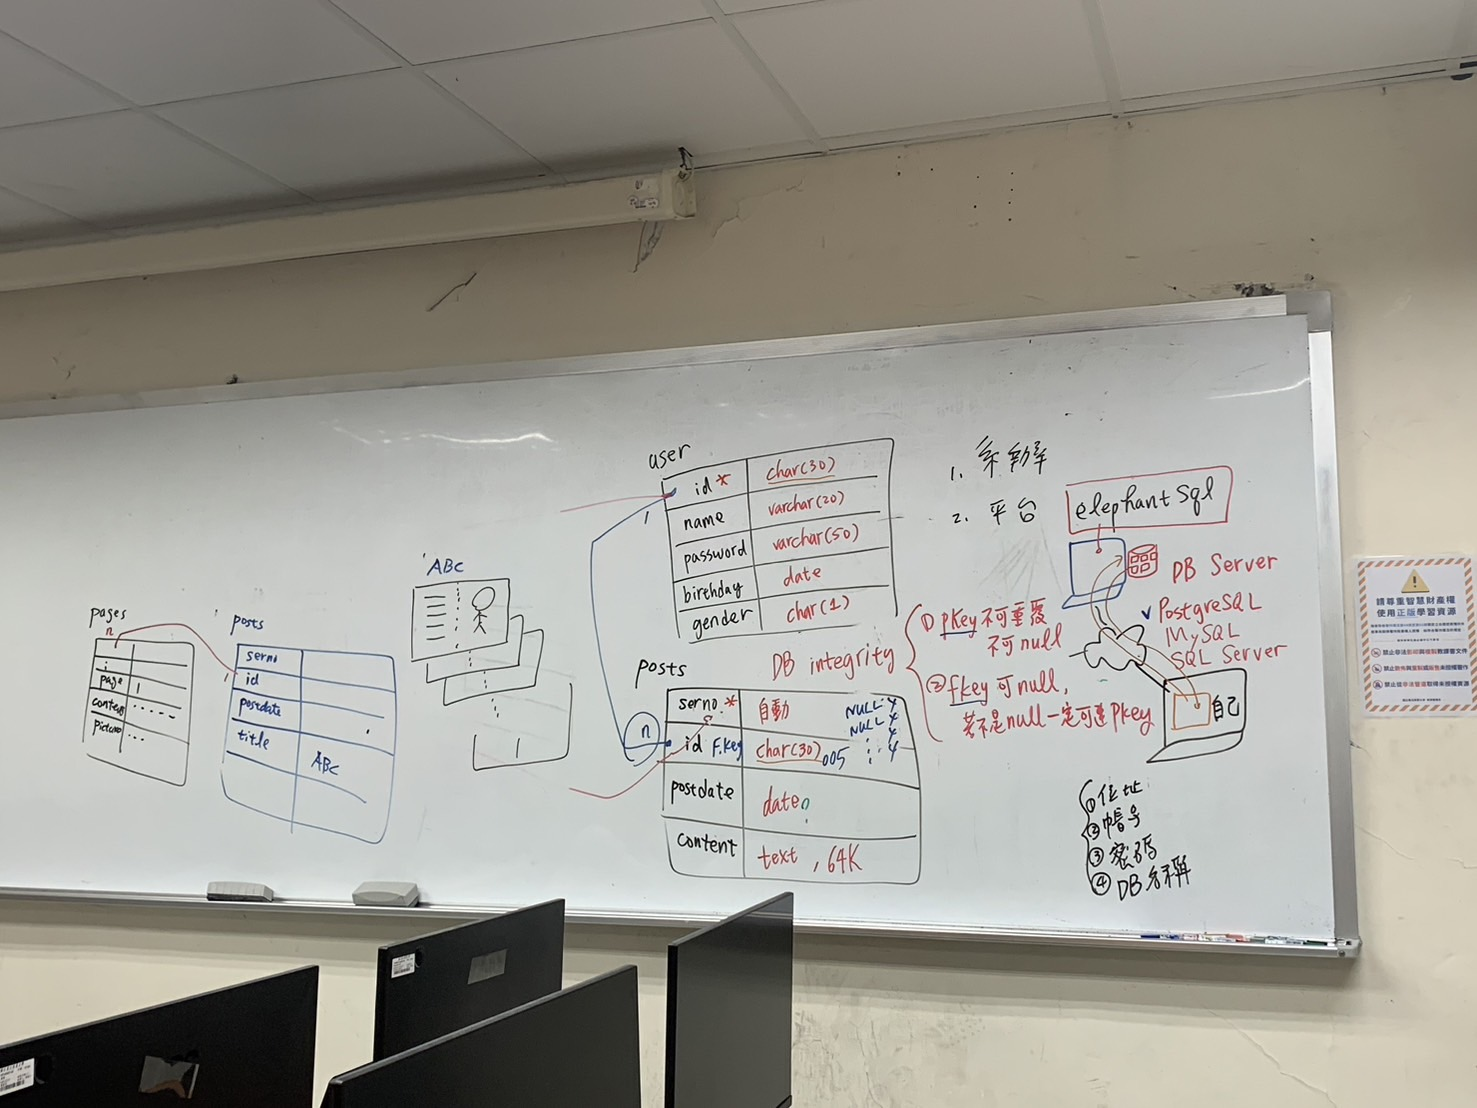 pages
n
page 1
content
picture
posts
1
serno
id
postdate
title
ABC
ABC
1
user
1
id * char(30)
name varchar(20)
password varchar(50)
birthday date
gender char(1)
posts
n
serno. * 自動
id F.key char(30) 005
NULL
NULL
postdate date
content text , 64K
DB integrity
① pkey 不可重覆
不可null
② fkey 可null,
若不是null一定可連pkey
1.
2. 平台
elephantSql
DB Server
✓ PostgreSQL
MySQL
SQL Server
自己
① 位址
② 帳号
③ 密碼
④ DB名稱
請尊重智慧財產權
使用正版學習資源